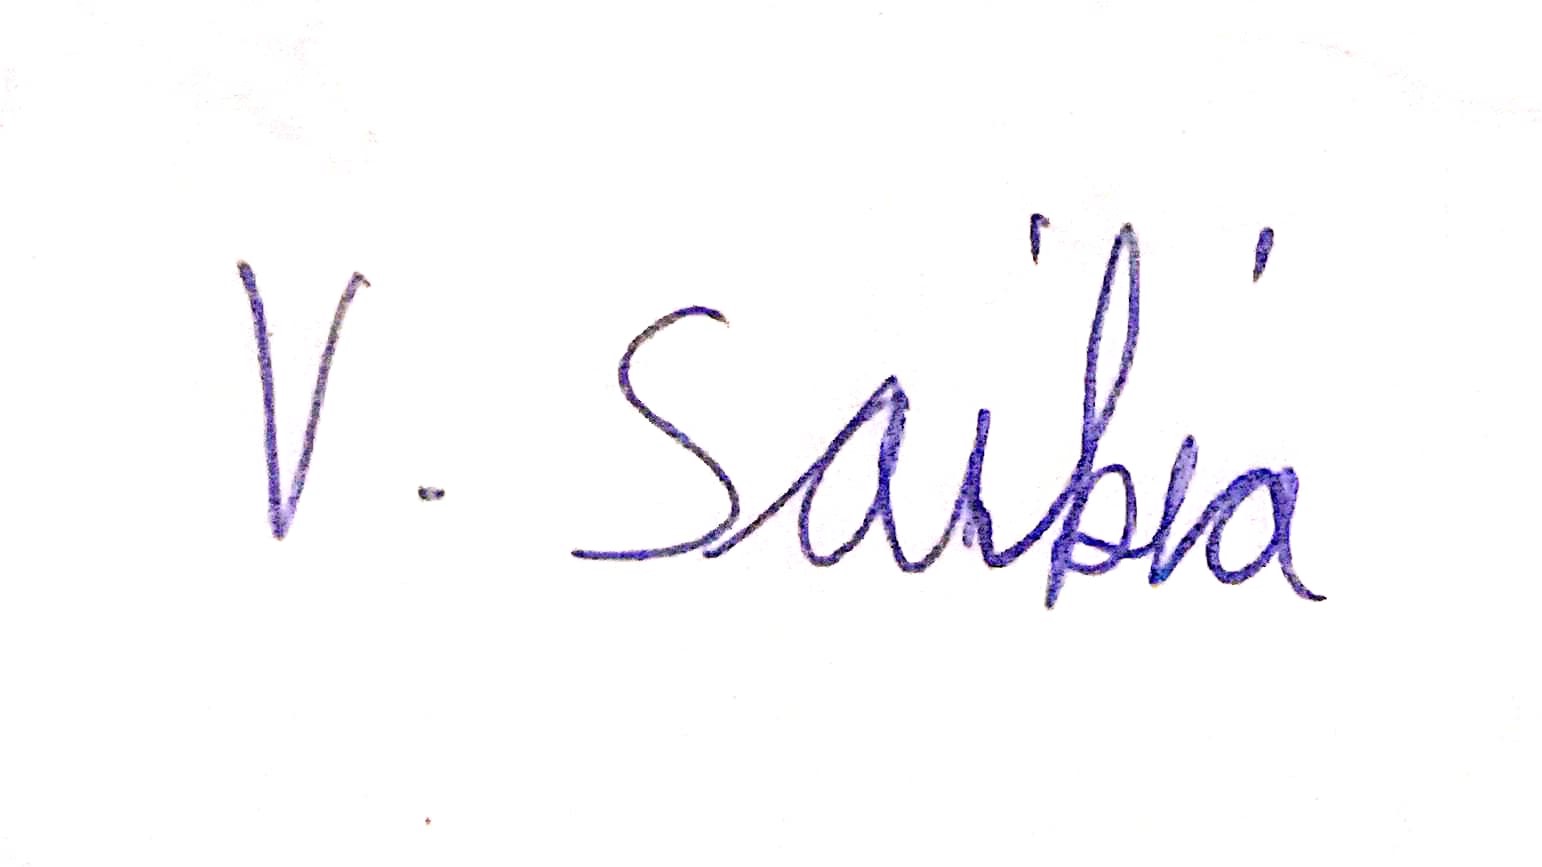 V. Saibia